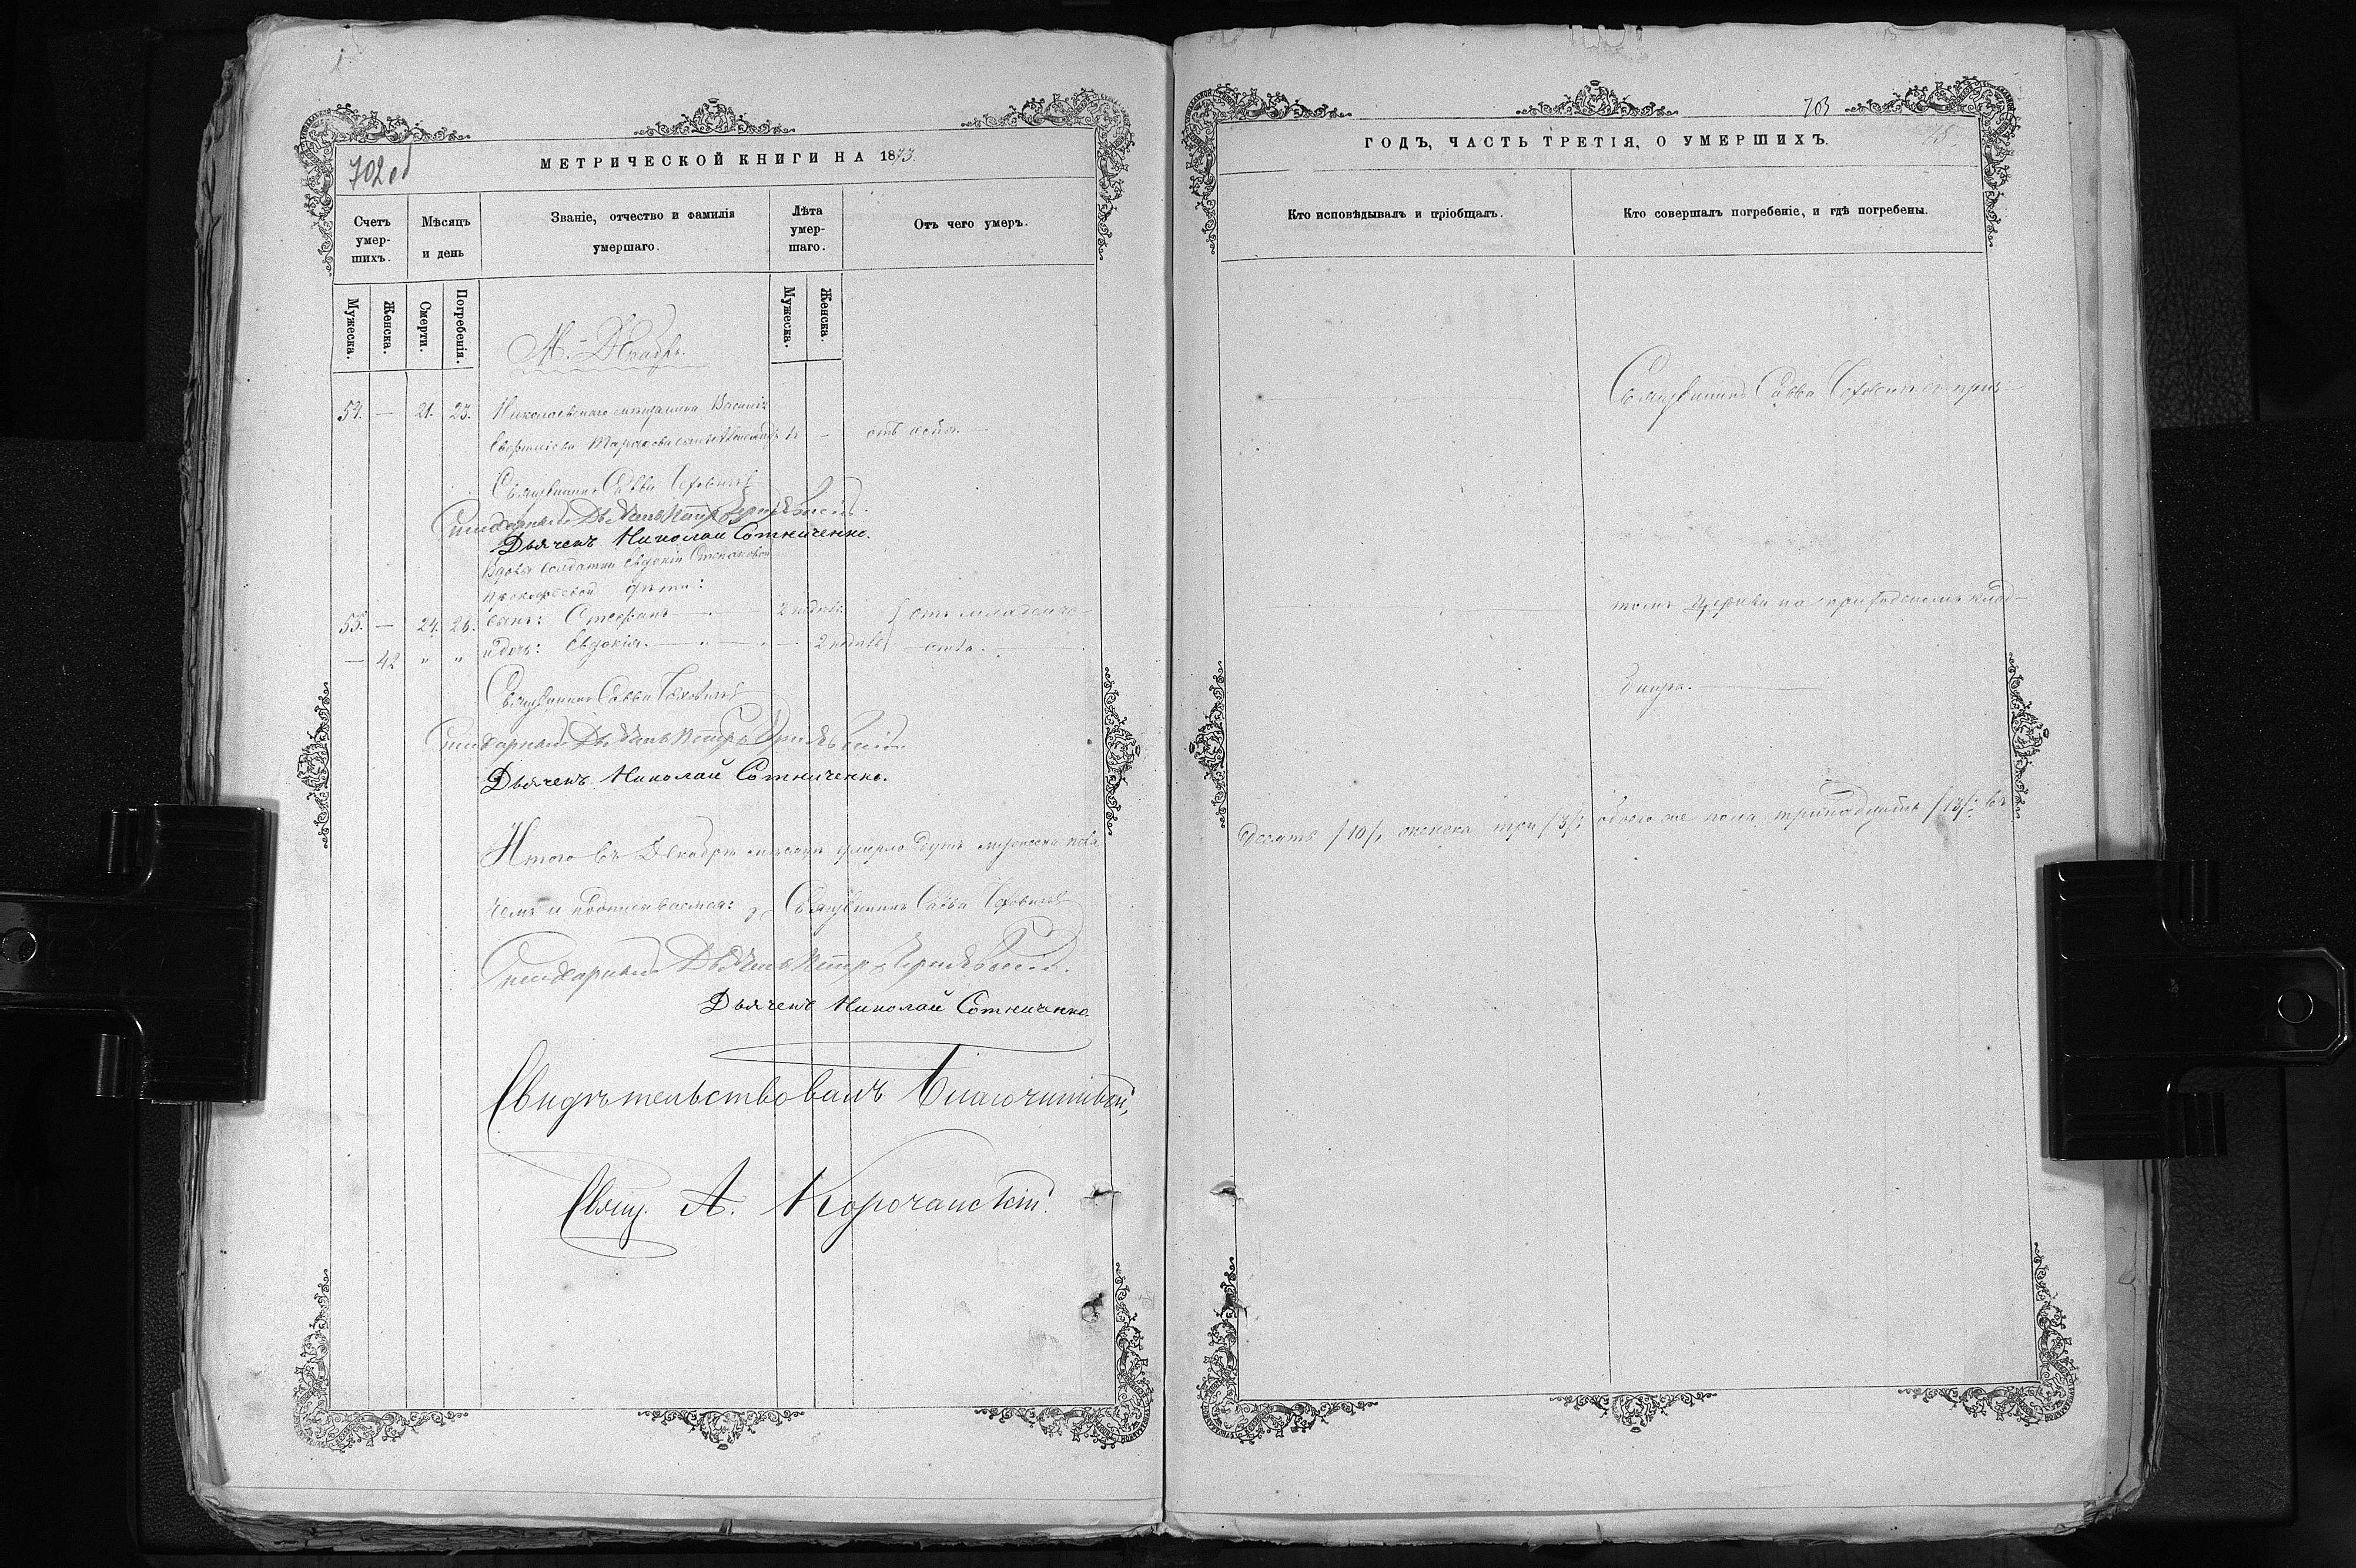 702 об
МЕТРИЧЕСКОЙ КНИГИ НА 1873.
Счетъ умер-шихъ.
Мѣсяцъ и день
Званіе, отчество и фамилія умершаго.
Лѣта умер-шаго.
Отъ чего умеръ.
Мужеска.
Женска.
Смерти.
Погребенія.
Мужеска.
Женска.
М. Декабрь.
54. — 21. 23. Николаевскаго мѣщанина Василія
сынъ —
Священникъ Савва
Дьячекъ Николай Сотниченко.
Вдовы солдатки Евдокіи Степановой
дѣти:
55. — 24. 26. сынъ: Стефанъ 2 отъ младенче-
— 42 " " и дочь: Евдокія. 2 ства.
Священникъ Савва
Дьячекъ Николай Сотниченко.
Итого въ Декабрѣ мѣсяцѣ умерло душъ мужеска пола
чемъ и подписываемся: Священникъ Савва
Дьячекъ Николай Сотниченко.
Свидѣтельствовалъ Благочинный,
Свящ. А. Корочанскій.
703
ГОДЪ, ЧАСТЬ ТРЕТІЯ, О УМЕРШИХЪ.
Кто исповѣдывалъ и пріобщалъ.
Кто совершалъ погребеніе, и гдѣ погребены.
Священникъ Савва съ прич-
томъ Церкви на приходскомъ клад-
бищѣ.
десять /10/, женска три /3/; обоего же пола тринадцать /13/; въ